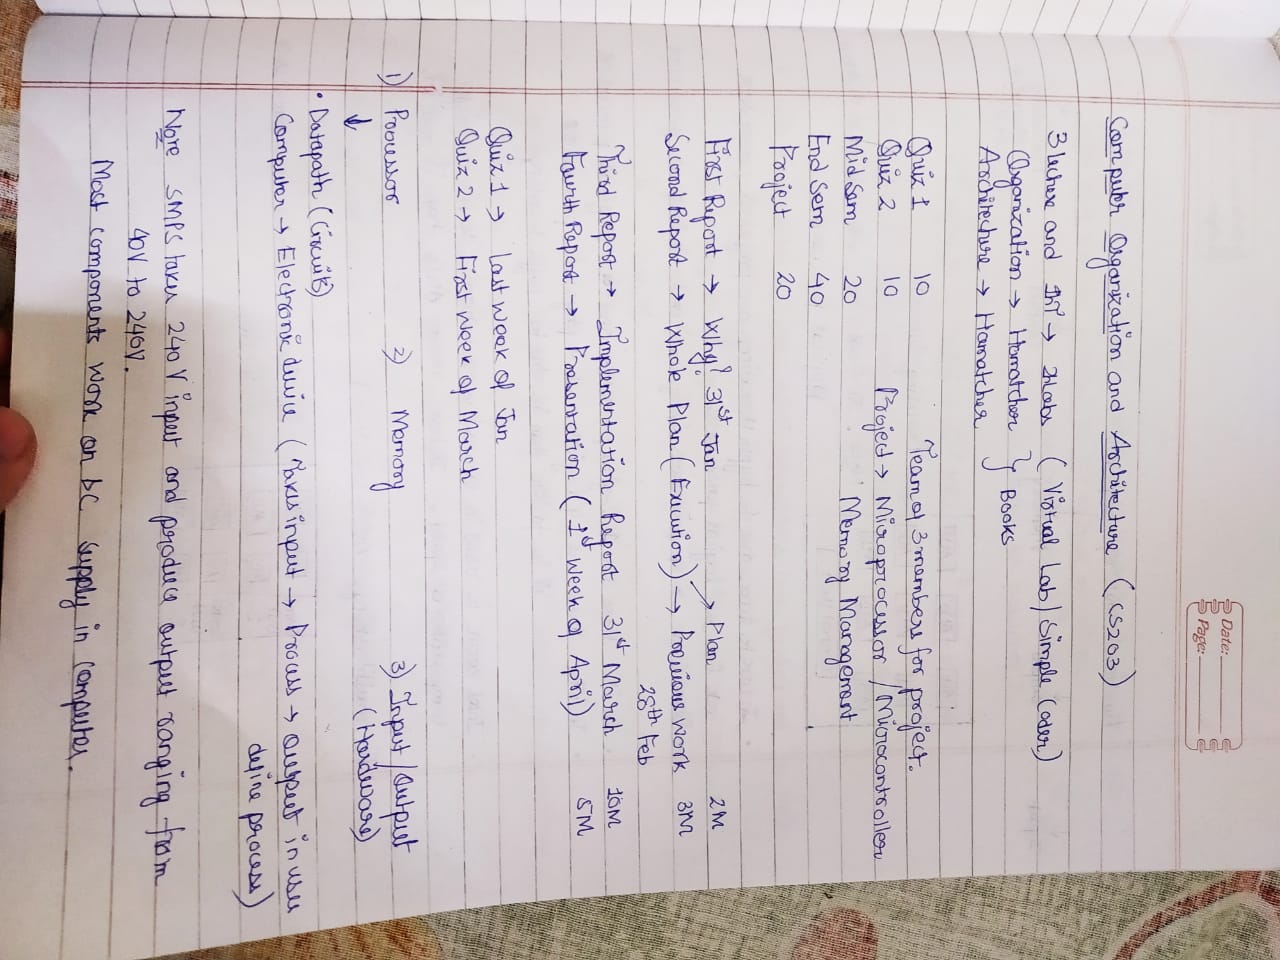 Date:
Page:
Computer Organization and Architecture (CS203)
3 lecture and 1T → 2Labs (Virtual Lab/Simple Coder)
Organization → Hamatcher } Books
Architecture → Hamatcher
Quiz 1 10 Team of 3 members for project.
Quiz 2 10 Project → Microprocessor / Microcontroller
Mid Sem 20 Memory Management
End Sem 40
Project 20
First Report → Why? 31st Jan → Plan 2M
Second Report → Whole Plan (Execution) → Previous work 3M
28th Feb
Third Report → Implementation Report 31st March 10M
Fourth Report → Presentation (1st Week of April) 5M
Quiz 1 → Last week of Jan
Quiz 2 → First week of March
1) Processor 2) Memory 3) Input / Output
↓ (Hardware)
• Datapath (Circuits)
Computer → Electronic device (Takes input → Process → output in user
define process)
Note SMPS takes 240V input and produce output ranging from
40V to 240V.
Most components work on DC supply in computer.